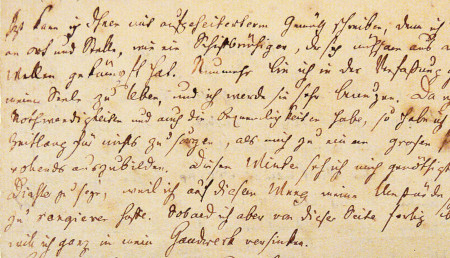 kann ich Ihnen mit aufgeheiterterem Gemüth schreiben, denn ich
an Ort und Stelle, wie ein Schiffbrüchiger, der sich mühsam aus
Wellen gekämpft hat. Nunmehr bin ich in der Verfaßung
meiner Seele zu leben, und ich werde sie sehr benuzen. Da
Nothwendigkeiten und auch die Bequemlichkeiten habe, so habe ich
Zeitlang für nichts zu sorgen, als mich zu einem großen
auszubilden. Diesen Winter seh ich mich genöthigt
Dichter zu seyn, weil ich auf diesem Weeg meine Umstände
zu rangieren hoffe. Sobald ich aber von dieser Seite fertig
will ich ganz in mein Handwerk versinken.